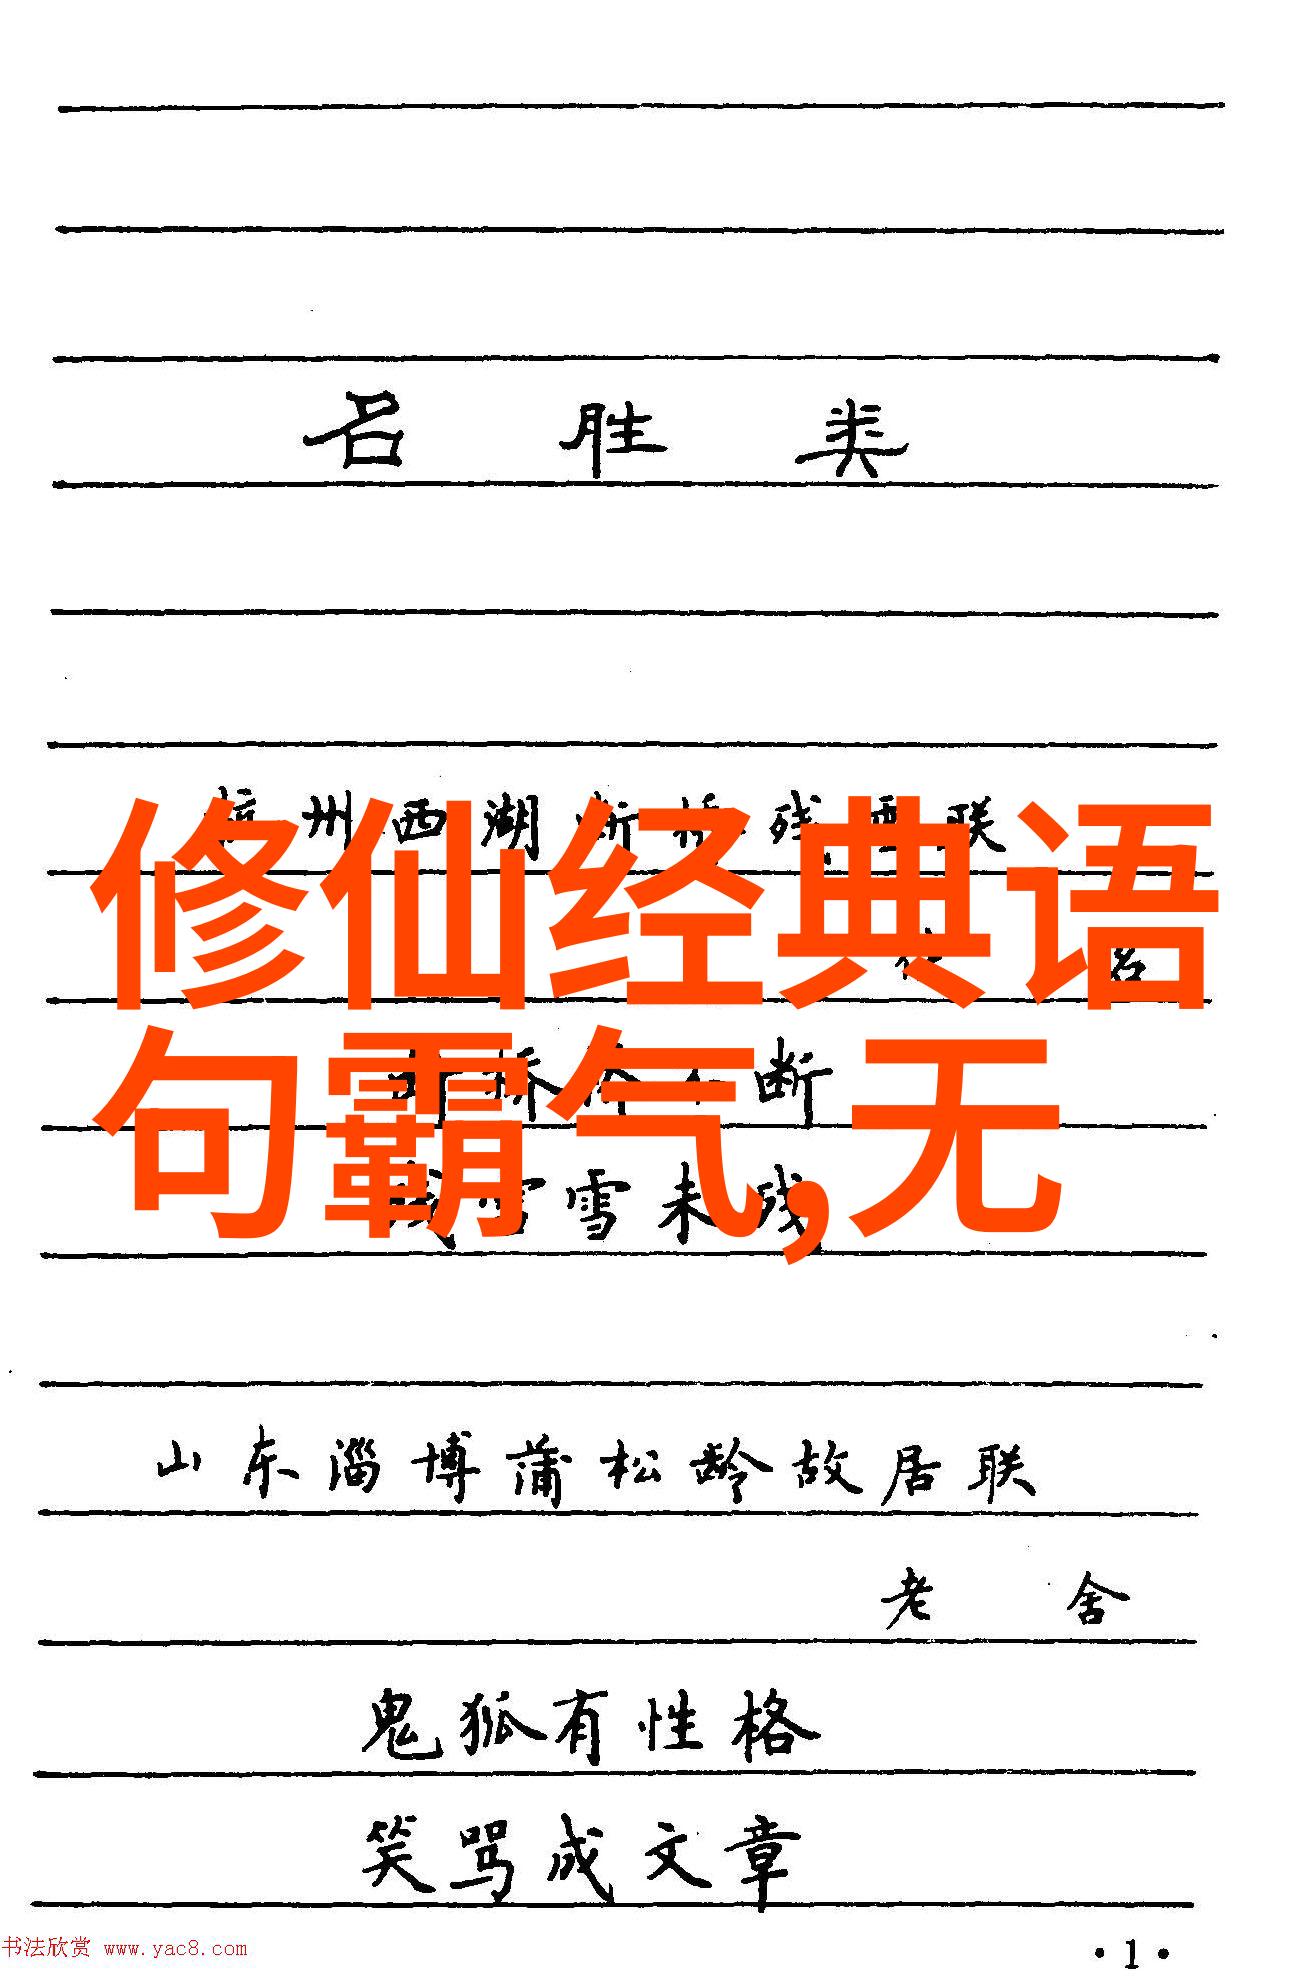 名胜类
杭州西湖断桥残雪联
修仙经典语
名
句霸气,无
断
雪未残
山东淄博蒲松龄故居联
老舍
鬼狐有性格
笑骂成文章
书法欣赏 www.yac8.com
·1·